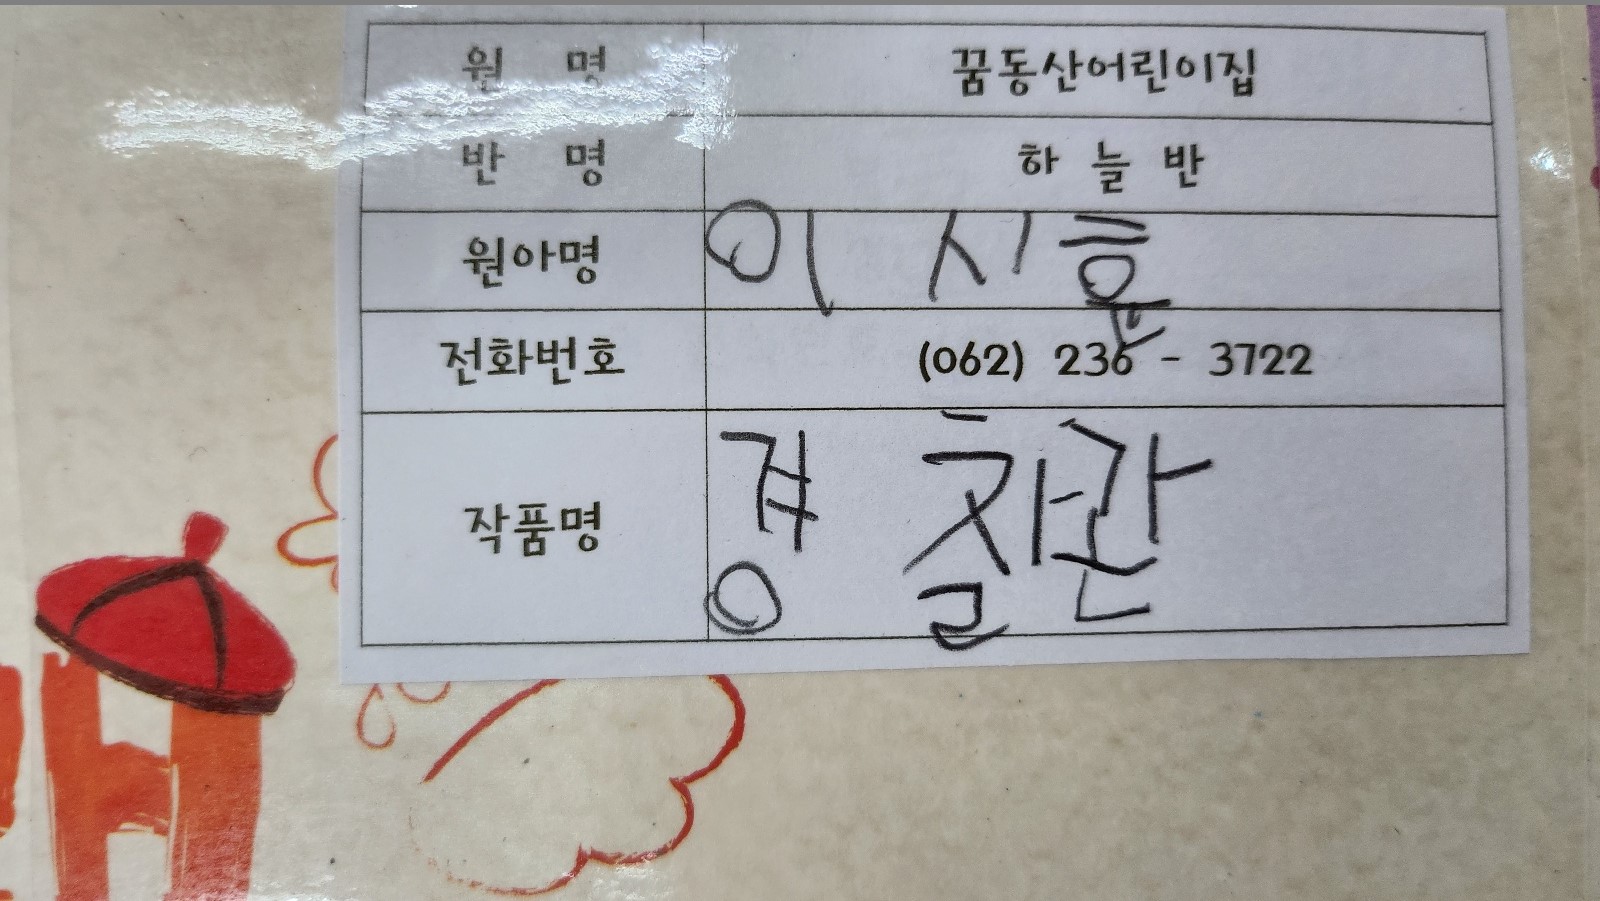 원 명 꿈동산어린이집
반 명 하늘반
원아명 이 시흔
전화번호 (062) 236 - 3722
작품명 경찰관